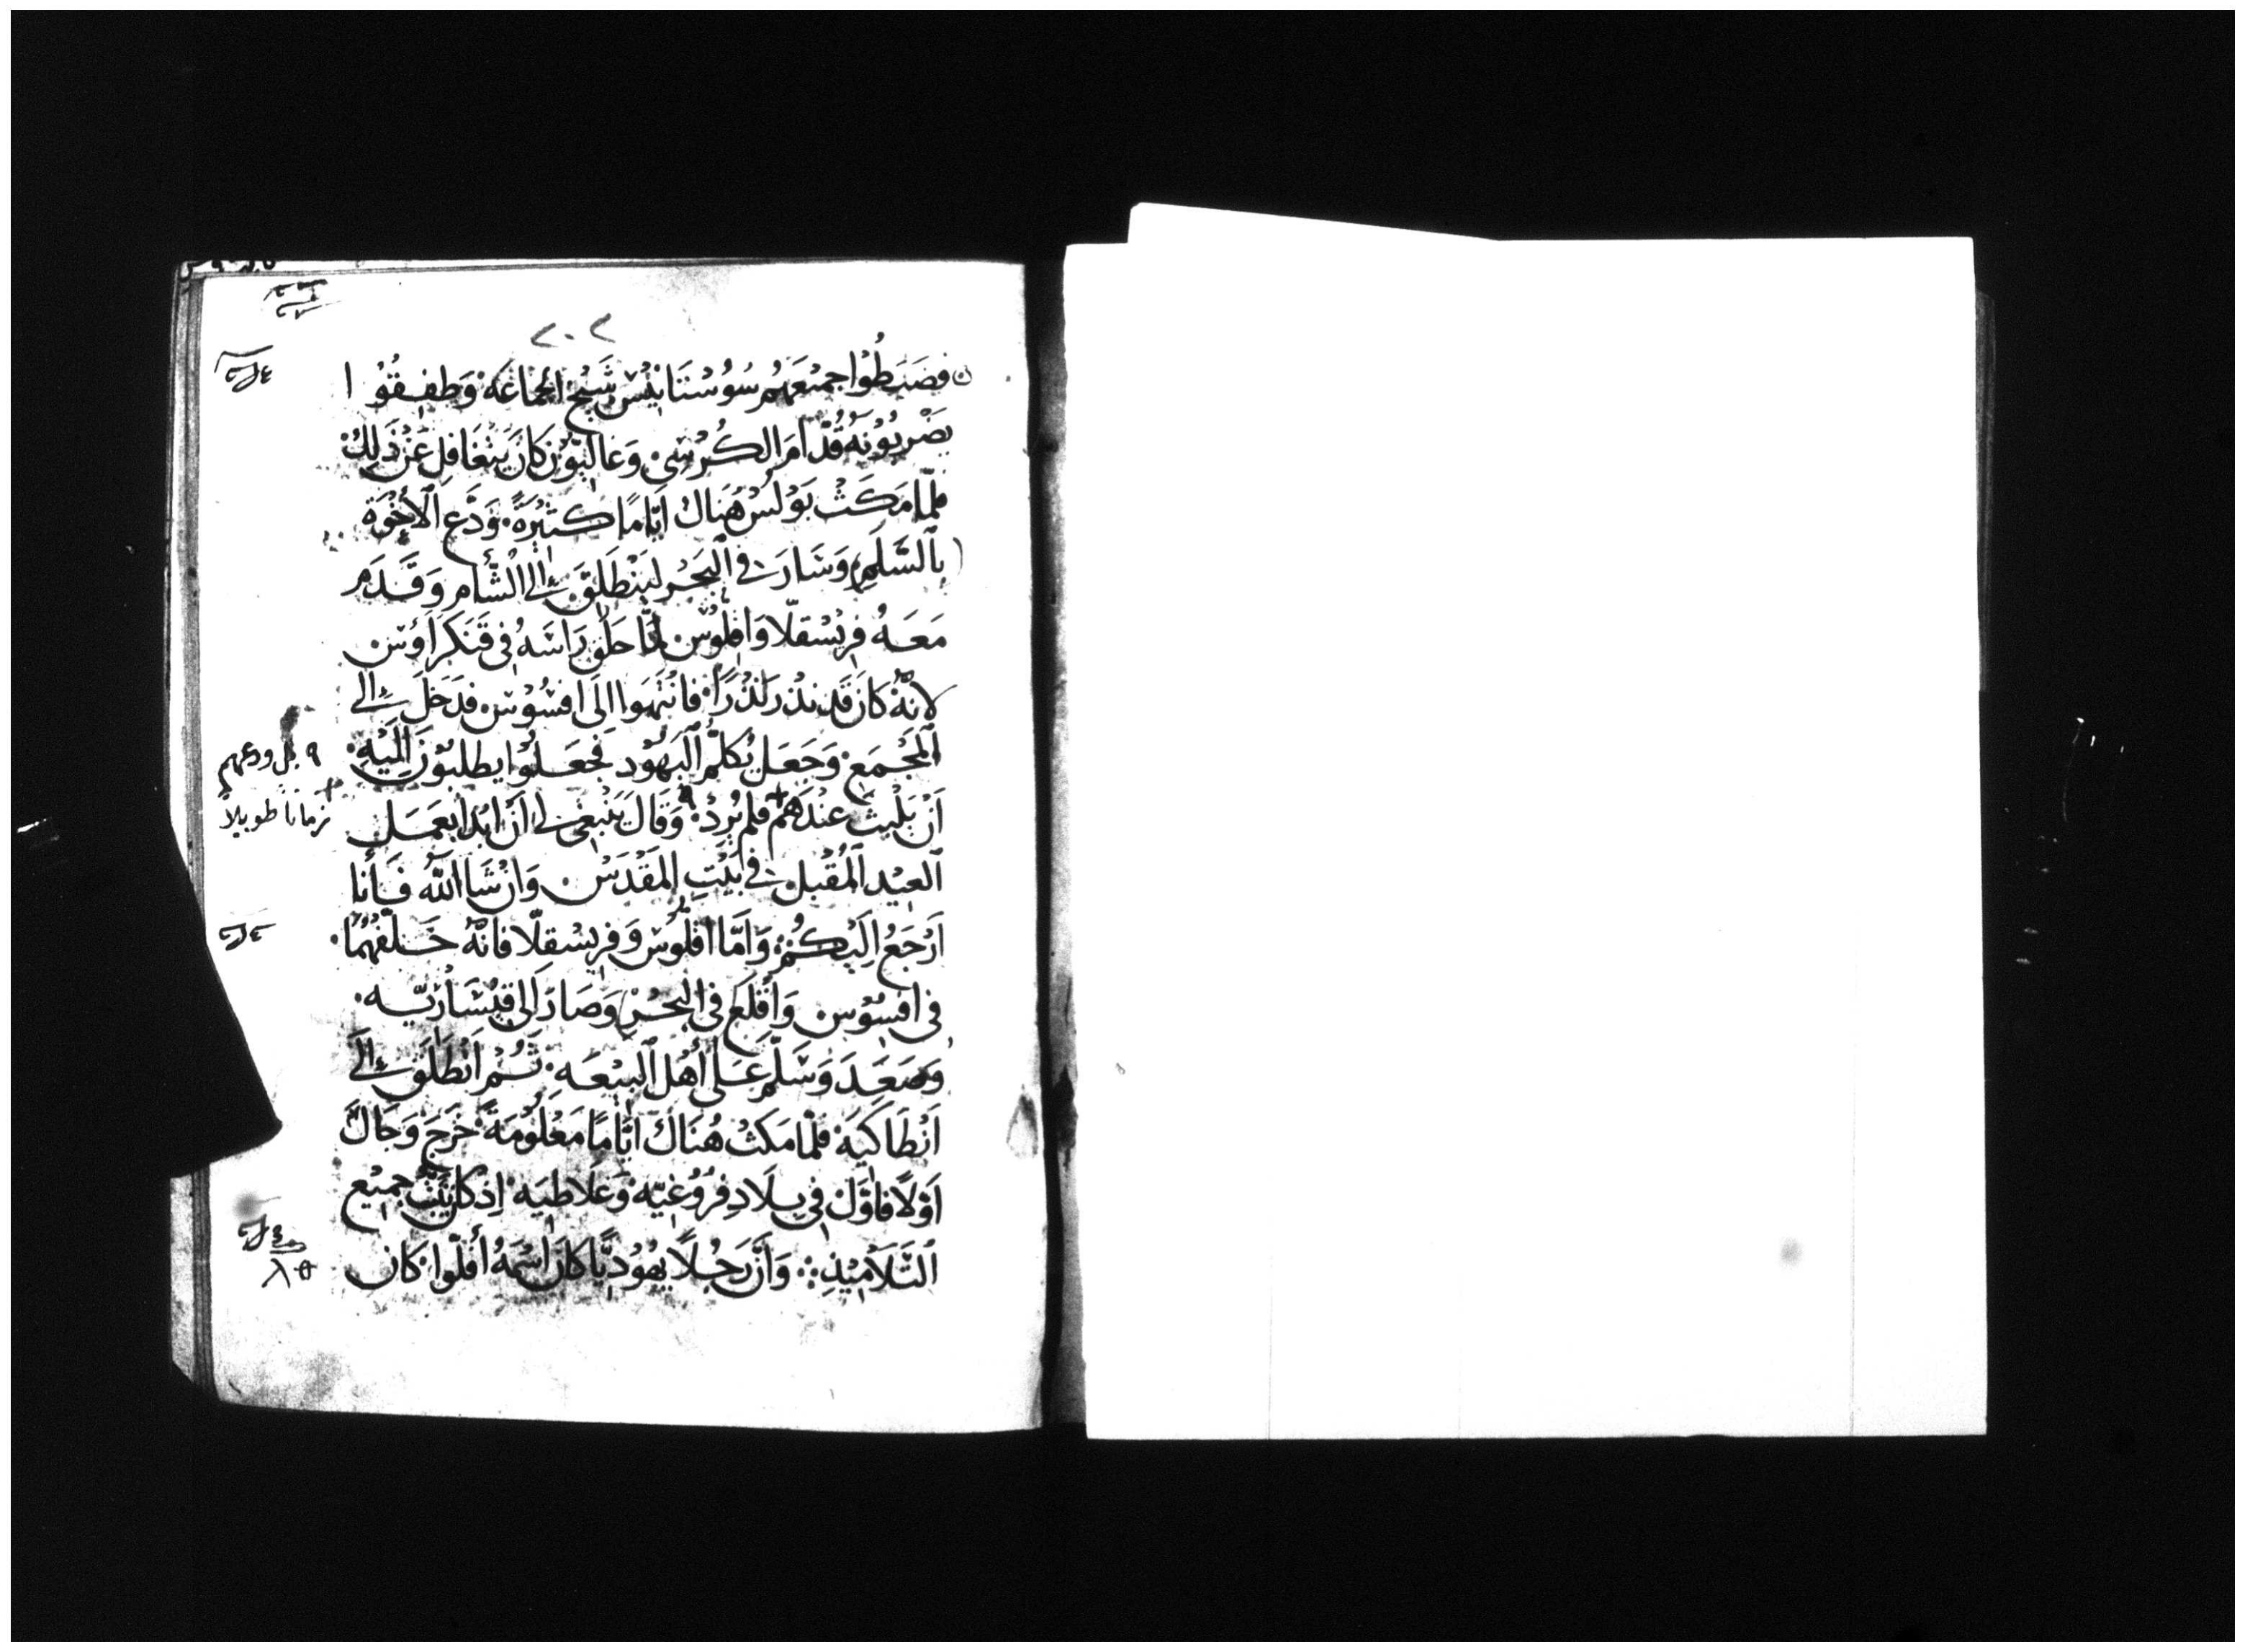 ٢٠٢
فضَبَطُوْا جميْعَهُم سُوُسْتَانيْس شَيْخ الجمَاعَة وَطفِقُوْا
يضْربُوْنهُ قُدْامَ الكُرْسِي وَغاليُوْن كانَ يَتغَافل عَن ذَلِكَ
فلمّا مَكَثْ بَوْلسْ هُنَاك ايّامًا كثيْرَةً وَدَّع الأخْوَة
بالسَّلَمِ وَسَارَ في البَحْر ليَنْطَلقَ إلى الشَّام وَقَدَم
مَعَهُ فريْسْقلّا وَاقلُوْس لمّا حَلَق رَاسَهُ في قَنَكرَاؤس
لانّهُ كانَ قَد نذر نذْرًا فانْتهَوا الَى افسُوْس فدَخَلَ إلى
المَجْمَع وَجَعَل يُكلّم اليَهُوْد فجَعَلُوْا يطلبُوْنَ إليْهِ
أَنْ يَلْبثَ عنْدَهُم فلم يُرِدْ وَقَالَ يَنْبَغي لي أَنْ ابَدا بعَمَل
العيْد المُقْبل في بَيْت المَقْدَسْ وَانْ شَا اللّه فَأنا
أرْجَعُ اليْكُمْ وَامَّا اقلُوس وَفريْسقلّا فانّهُ خَلّفهُمَا
في افسُوْس وَأقْلَع في البَحْر وَصَارَ الى قيْسَاريّه
وَصَعَدَ وَسَلّم عَلى أهْل البيْعَه ثُمّ انْطَلَق إلَى
انْطَاكيَة فلمّا مَكثْ هُنَاكَ ايّامًا مَعْلُوْمَةً خَرَجَ وَجَالَ
اوْلًا فاوَّل في بلَادِ فرُوْغيّه وَغَلَاطيَه إذ كانَ يُثَبّتْ جميْع
التَّلَامِيْذِ وَأنَّ رَجُلًا يهُوْديًّا كانَ اسْمَهُ أفلّوا كان
٩ بل ودعهم
زمانا طويلا